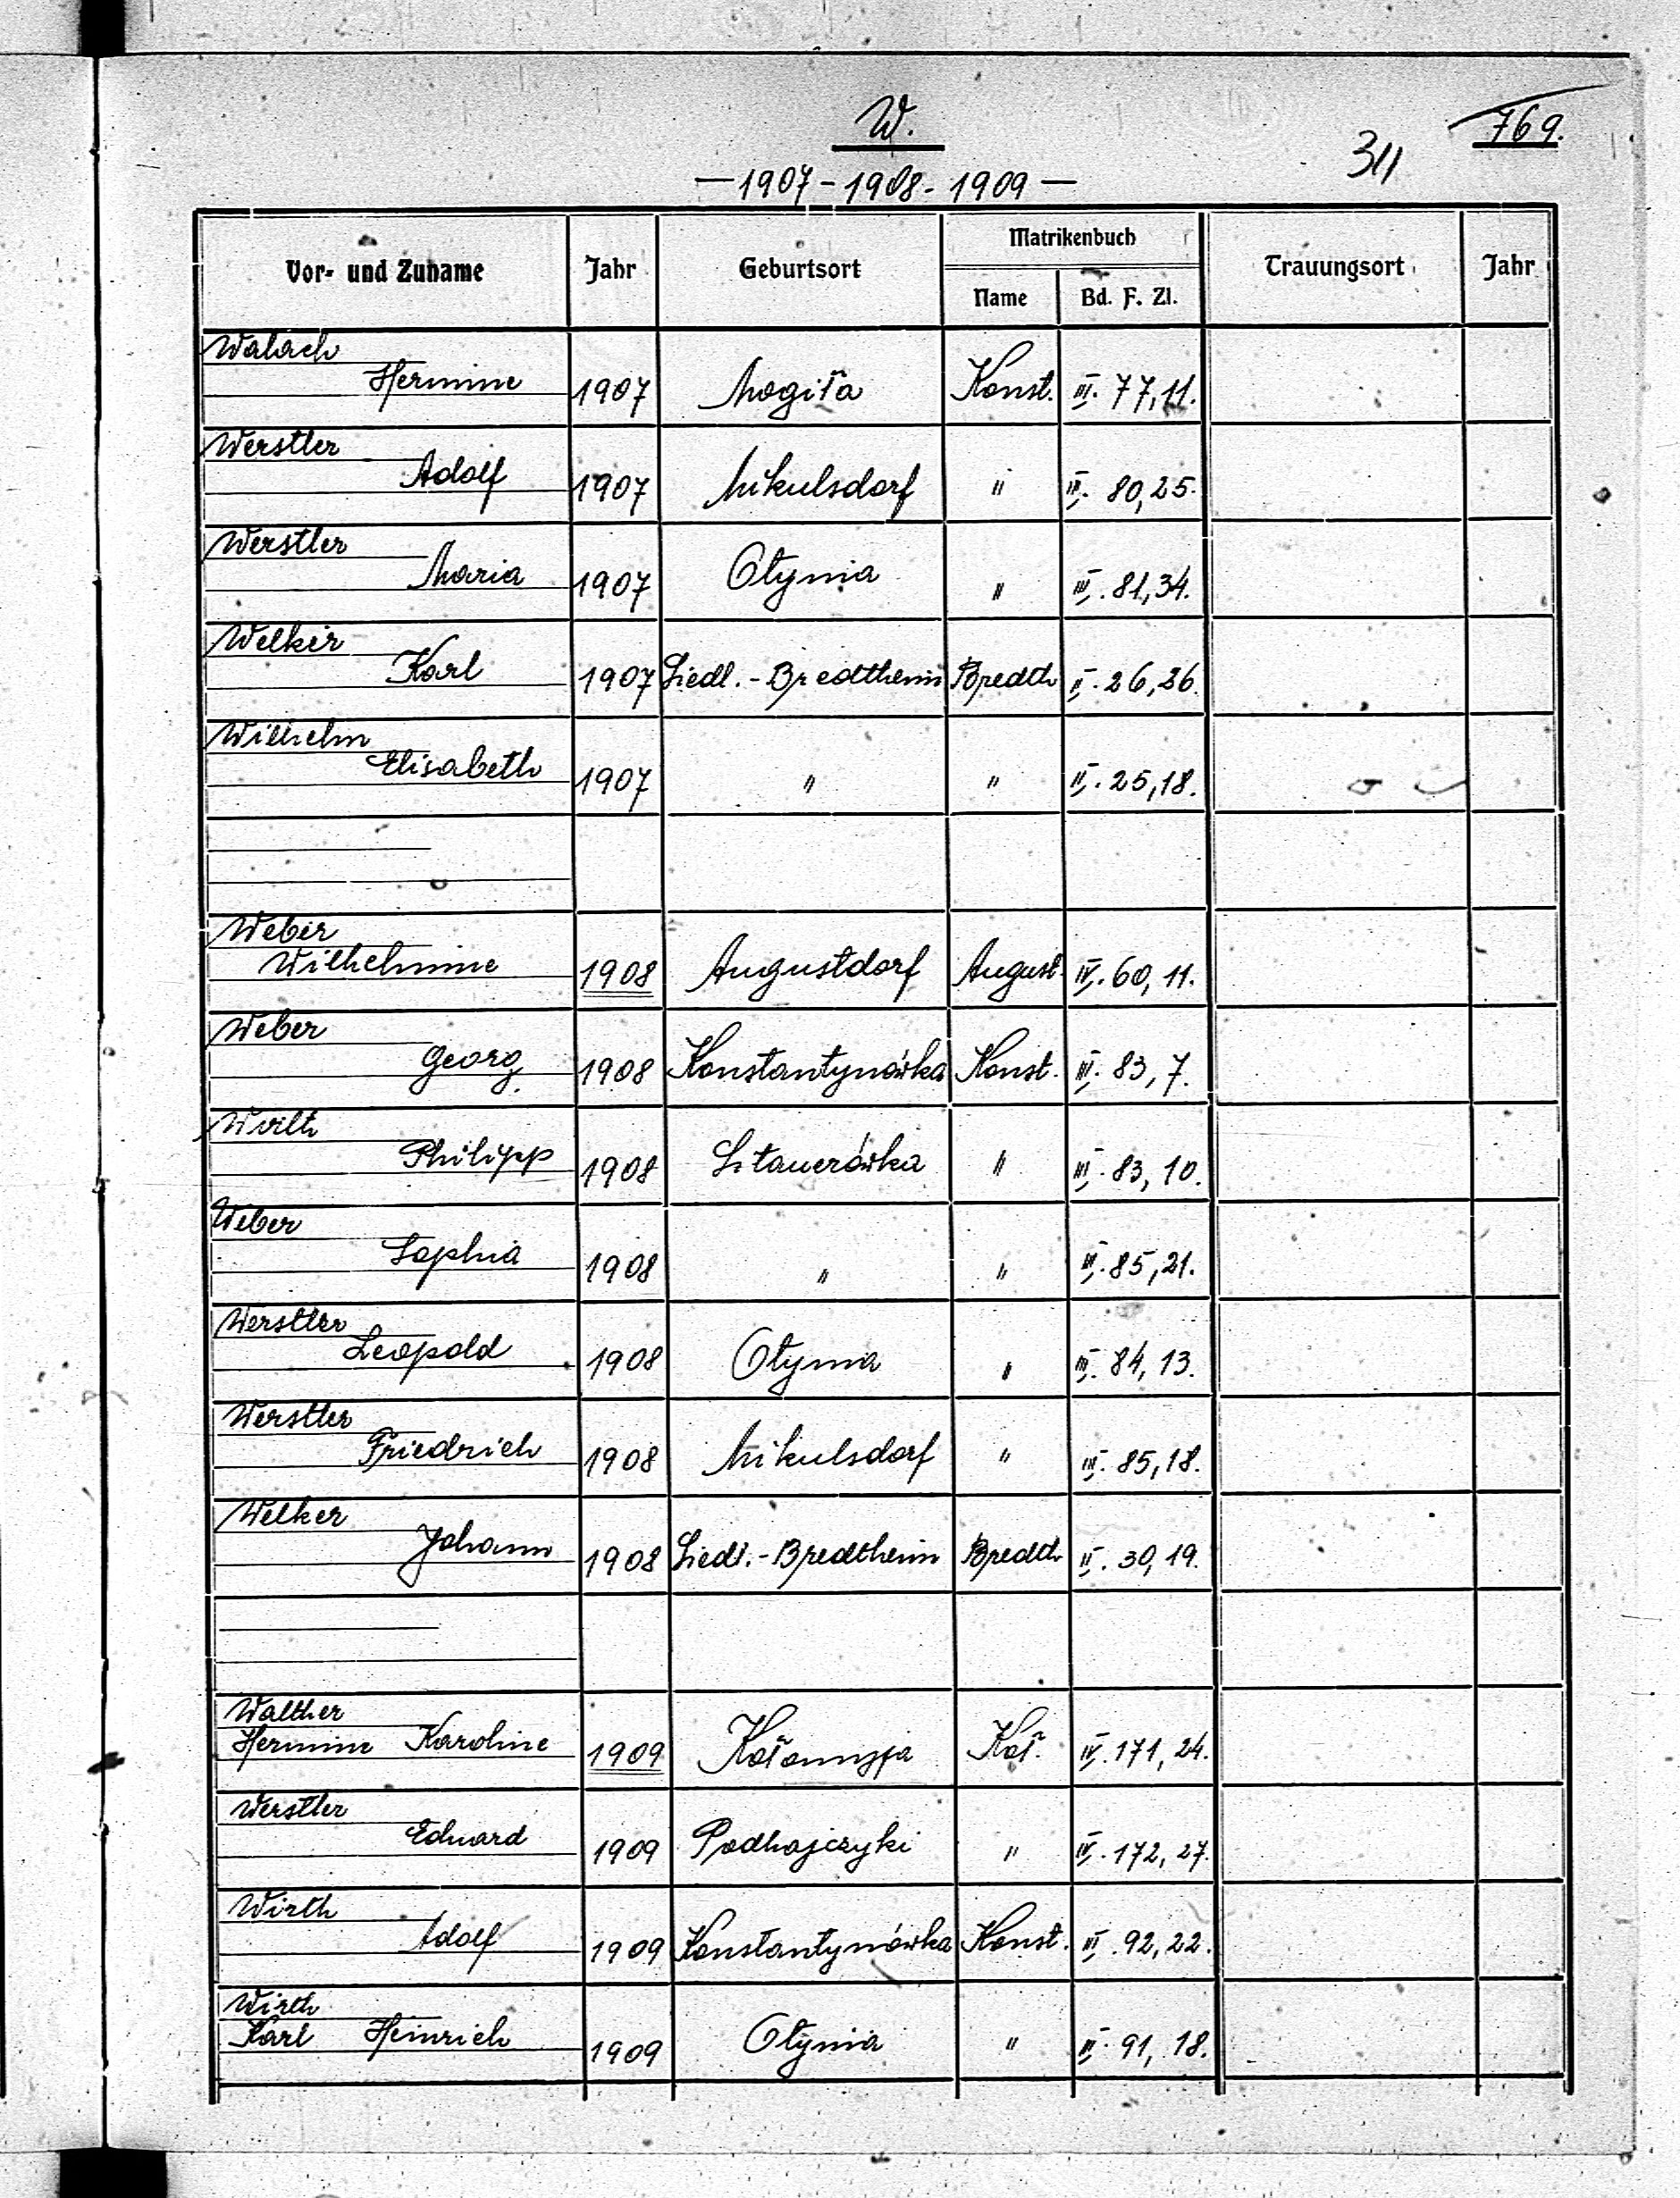 W.
769.
311
— 1907 - 1908 - 1909 —
Vor- und Zuname Jahr Geburtsort Matrikenbuch Trauungsort Jahr
Name Bd. F. Zl.
Walach
Hermine 1907 Mogiła Konst. III. 77, 11.
Werstler
Adolf 1907 Mikulsdorf " III. 80, 25.
Werstler
Maria 1907 Otynia " III. 81, 34.
Welker
Karl 1907 Siedl. - Bredtheim Bredth II. 26, 26.
Wilhelm
Elisabeth 1907 " " II. 25, 18.
Weber
Wilhelmine 1908 Augustdorf August. IV. 60, 11.
Weber
Georg 1908 Konstantynówka Konst. III. 83, 7.
Philipp 1908 Sitauerówka " III. 83, 10.
Weber
Sophia 1908 " " III. 85, 21.
Werstler
Leopold 1908 Otynia " III. 84, 13.
Werstler
Friedrich 1908 Mikulsdorf " III. 85, 18.
Welker
Johann 1908 Siedl. - Bredtheim Bredth II. 30, 19.
Walther
Hermine Karoline 1909 Kołomyja Koł. IV. 171, 24.
Werstler
Eduard 1909 Podhajczyki " IV. 172, 27.
Wirth
Adolf 1909 Konstantynówka Konst. III. 92, 22.
Wirth
Karl Heinrich 1909 Otynia " III. 91, 18.